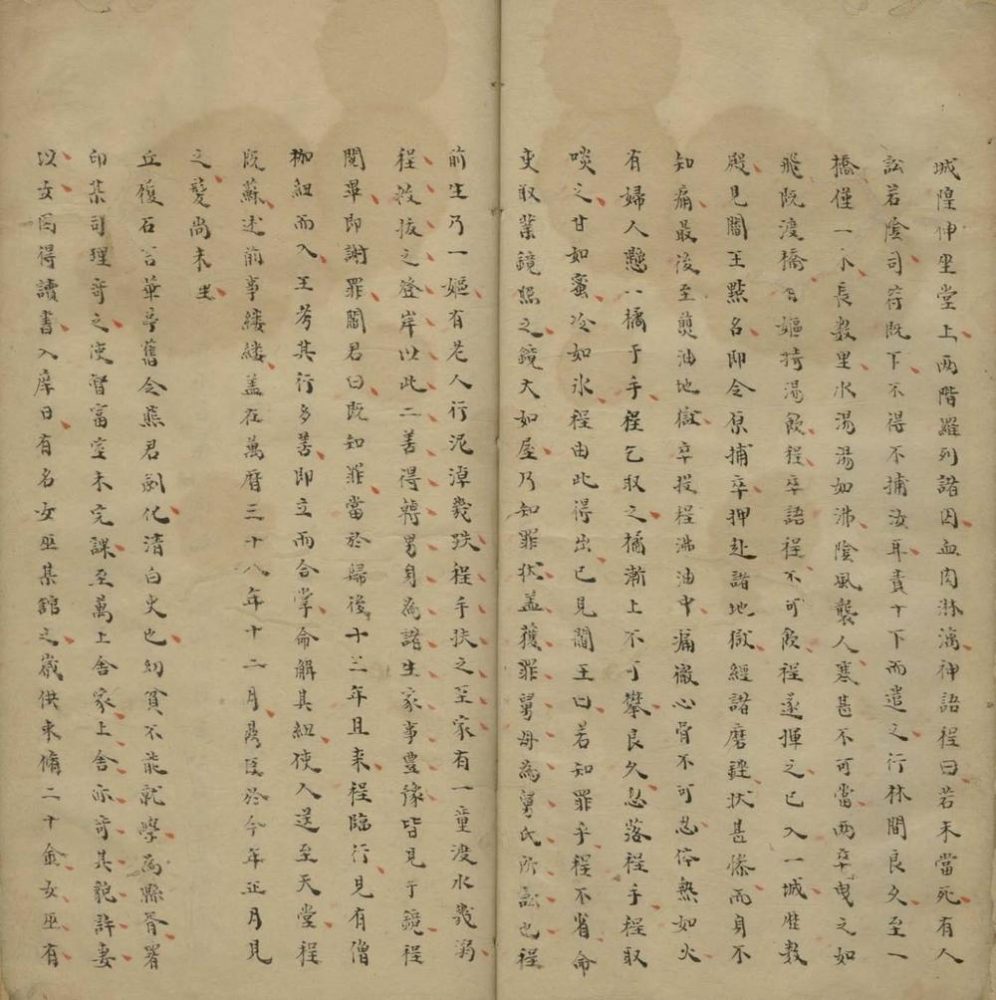 城隍神坐堂上兩階羅列諸囚血肉淋漓神語程曰若未當死有人
訟若陰司符既下不得不捕汝耳責十下而遣之行林間良久至一
橋僅一木長數里水湯湯如沸陰風襲人寒甚不可當兩卒曳之如
飛既渡橋有嫗持湯飲程卒語程不可飲程遂揮之已入一城歷數
殿見閻王點名即令原捕卒押赴諸地獄經諸磨碓狀甚慘而身不
知痛最後至煎油地獄卒投程沸油中痛徹心骨不可忍倏熱如火
有婦人懸八橘于手程乞取之橘漸上不可攀良久忽落程手程取
啖之甘如蜜冷如氷程由此得出已見閻王曰若知罪乎程不省命
吏取業鏡照之鏡大如屋乃知罪狀盖獲罪舅母為舅氏所訟也程
前生乃一嫗有老人行泥淖幾跌程手扶之至家有一童渡水幾溺
程救拔之登岸以此二善得轉男身為諸生家事豐豫皆見于鏡程
閱畢即謝罪閻君曰既知罪當於歸後十三年且來程臨行見有僧
枷紐而入王考其行多善即立而合掌命解其紐使人送至天堂程
既蘇述前事縷縷盖在萬曆三十八年十二月 於今年正月見
之髮尚未生
丘復石言華亭舊令熊君劍化清白吏也幼貧不能就學為縣胥署
印某司理奇之使督富室未完課至萬上舍家上舍亦奇其貌許妻
以女因得讀書入庠日有名女巫某館之歲供束脩二十金女巫有